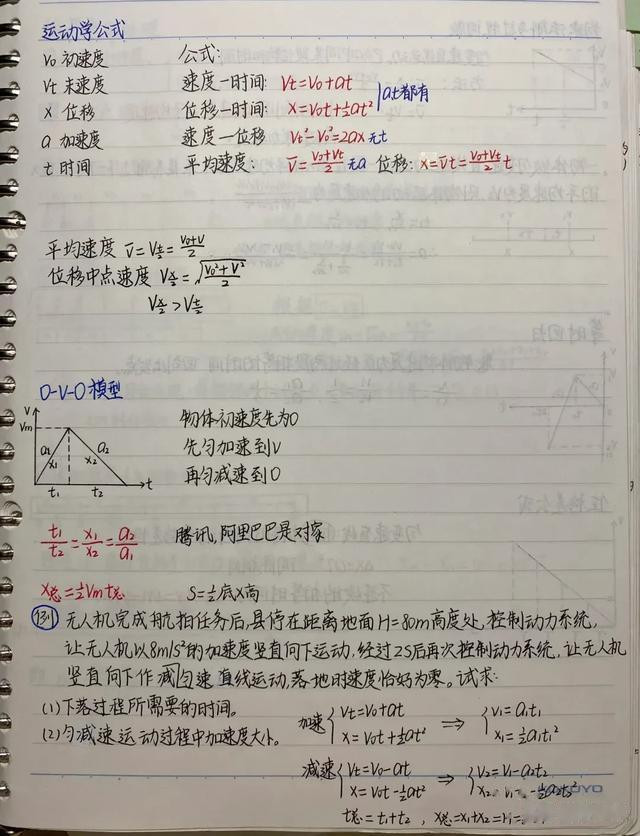 运动学公式
V₀ 初速度 公式:
Vt 末速度 速度一时间: Vt=V₀+at
X 位移 位移一时间: X=V₀t+½at² at都有
a 加速度 速度一位移 Vt²-V₀²=2ax 无t
t 时间 平均速度: V̅=(V₀+Vt)/2 无a 位移: x=V̅t=(V₀+Vt)/2 t
平均速度 V̅=V t/2=(V₀+V)/2
位移中点速度 V x/2=√((V₀²+V²)/2)
V x/2>V t/2
0-V-0模型
V
Vm
a₁ x₁ x₂ a₂
t₁ t₂ t
物体初速度先为0
先匀加速到V
再匀减速到0
t₁/t₂=x₁/x₂=a₂/a₁ 腾讯,阿里巴巴是对家
X总=½Vm t总 S=½底X高
例1 无人机完成航拍任务后,悬停在距离地面H=80m高度处,控制动力系统,
让无人机以8m/s²的加速度竖直向下运动,经过2S后再次控制动力系统,让无人机
竖直向下作减匀速直线运动,落地时速度恰好为零。试求:
(1)下落过程所需要的时间。
(2)匀减速运动过程中加速度大小。
加速 { Vt=V₀+at ⟹ { V₁=a₁t₁
X=V₀t+½at² X₁=½a₁t₁²
减速 { Vt=V₀-at ⟹ { V₂=V₁-a₂t₂
X=V₀t-½at² X₂
t总=t₁+t₂, X总=X₁+X₂=